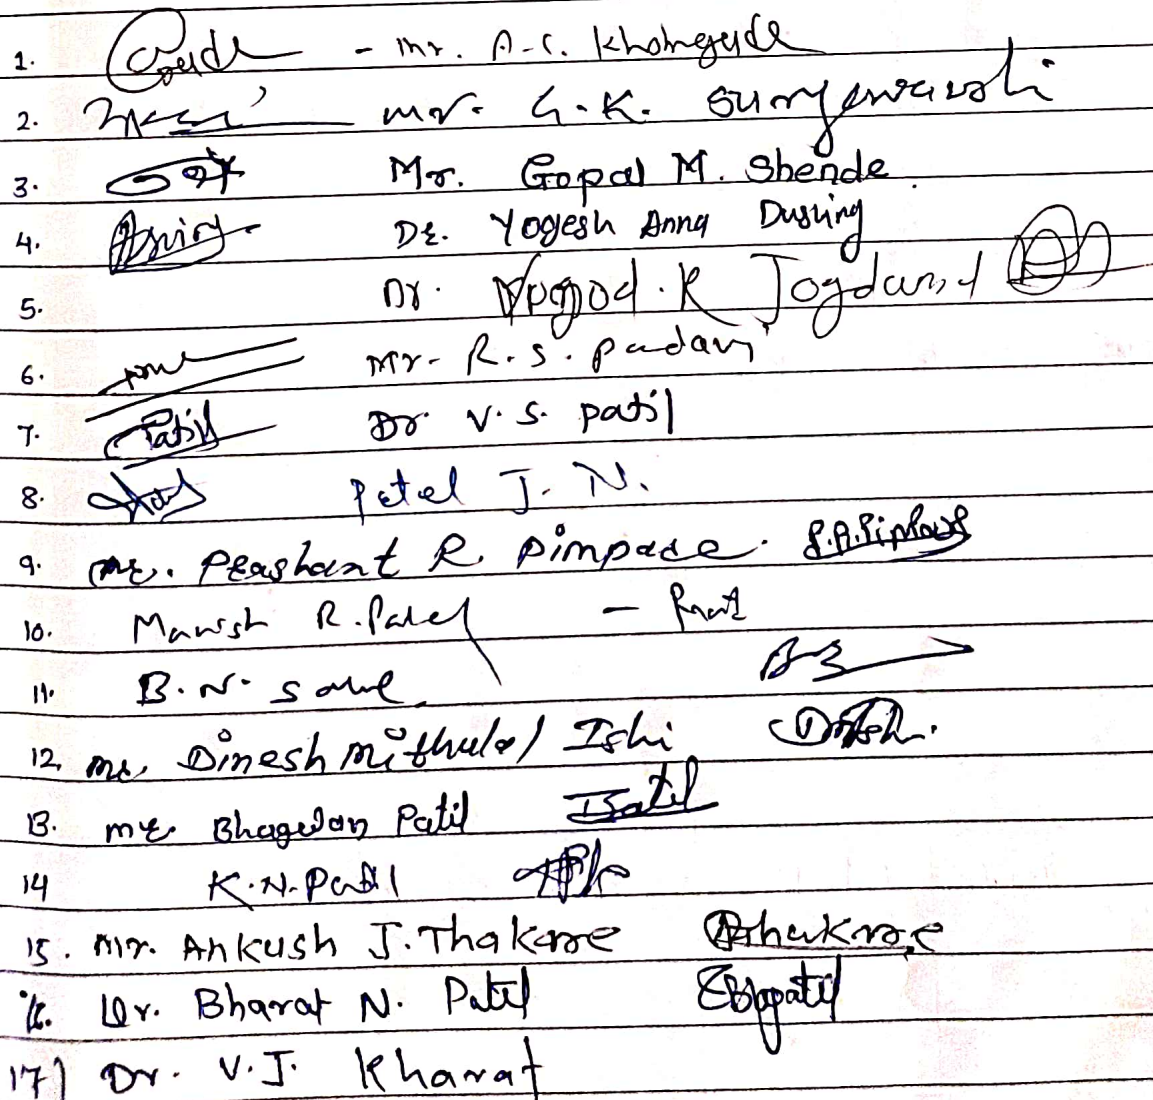 1. - Mr. A.C. Khairnar
2. mr. G.K. Suryawanshi
3. Mr. Gopal M. Shende
4. Dr. Yogesh Anna Dushing
5. Dr. K Jogdand
6. Mr. R.S. Padavi
7. Patil Dr. V.S. Patil
8. Patel J. N.
9. Mr. Prashant R. Pimpade.
10. Manish R. Patel -
11. B.N.
12. Mr. Dinesh Mithulal Ishi
13. Mr. Bhagwan Patil Patil
14 K.N. Patil
15. Mr. Ankush J. Thakare Thakare
16. Dr. Bharat N. Patil BNpatil
17) Dr. V.J. Kharat